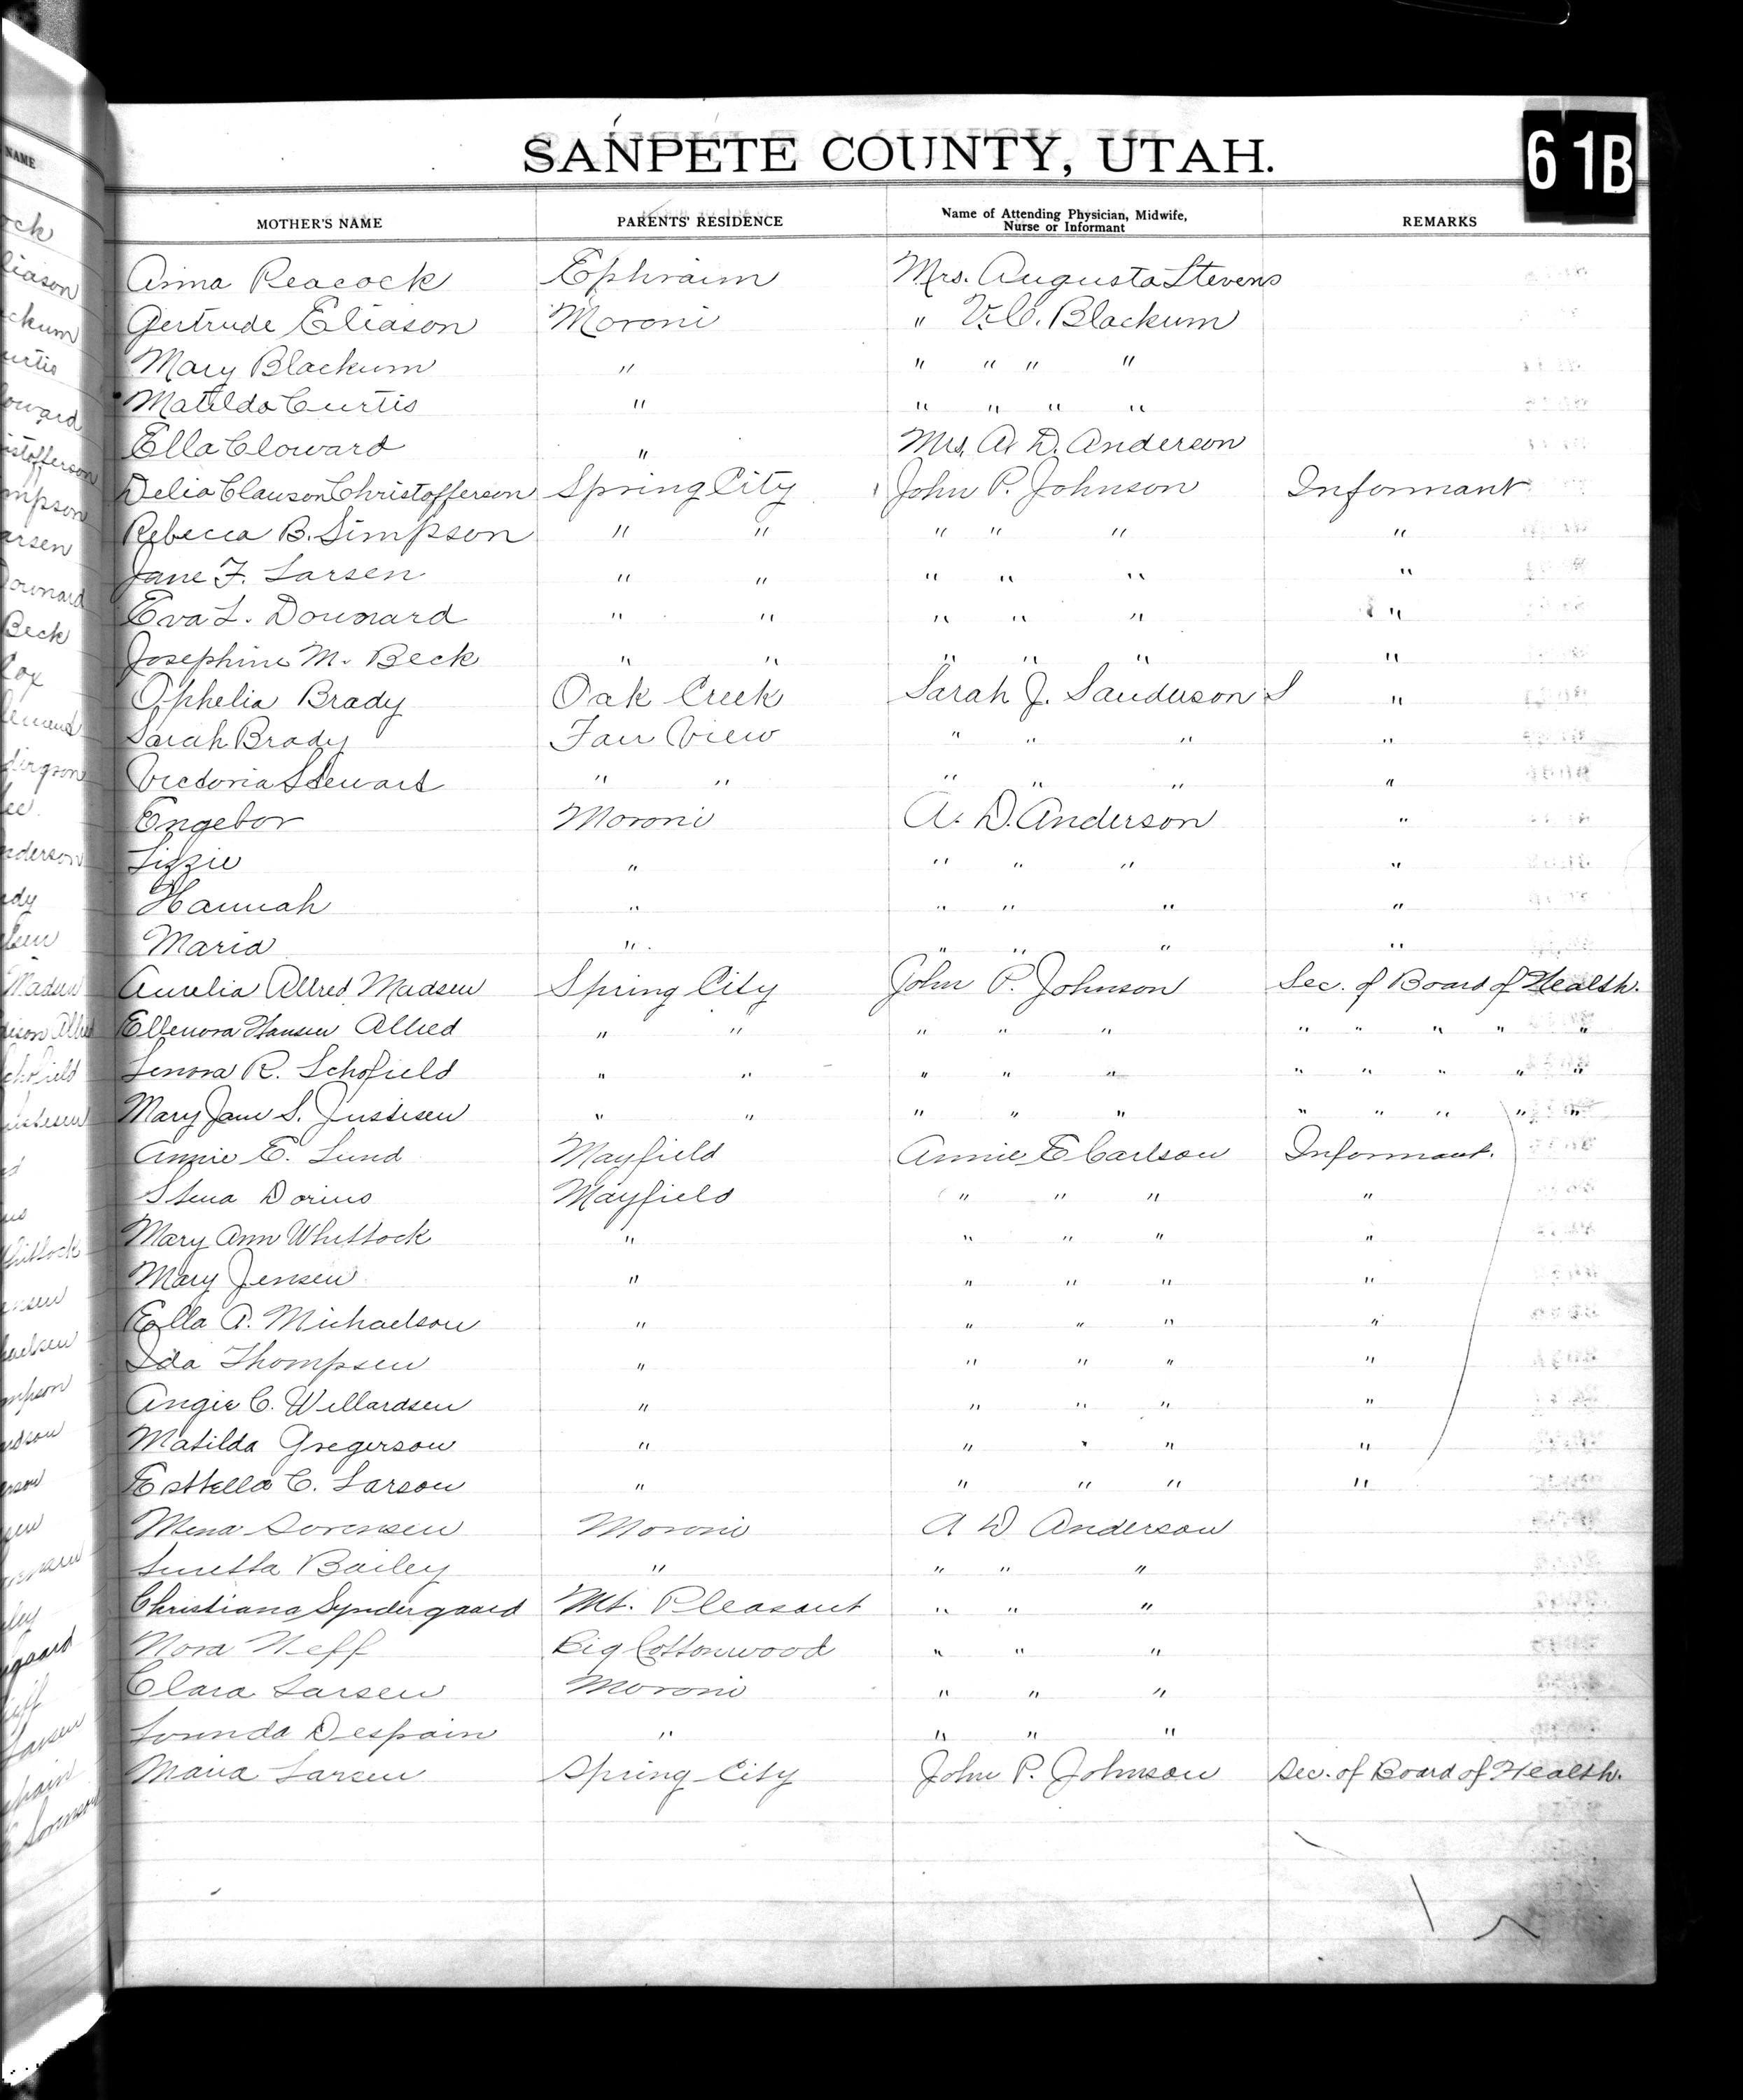 SANPETE COUNTY, UTAH.
61B
NAME
MOTHER'S NAME PARENTS' RESIDENCE Name of Attending Physician, Midwife, Nurse or Informant REMARKS
Anna Peacock Ephraim Mrs. Augusta Stevens
Gertrude Eliason Moroni " Blackum
Mary Blackum " " " " "
Matilda Curtis " " " " "
Ella Cloward " Mrs. A. D. Anderson
Delia Clauson Christofferson Spring City John P. Johnson Informant
Rebecca B. Simpson " " " " " "
Jane F. Larsen " " " " " "
Eva L. Downard " " " " " "
Josephine M. Beck " " " " " "
Ophelia Brady Oak Creek Sarah J. Sanderson S "
Sarah Brady Fair View " " " "
Victoria Stewart " " " " " "
Engebor Moroni A. D. Anderson "
Lizzie " " " " "
Hannah " " " " "
Maria " " " " "
Aurelia Allred Madsen Spring City John P. Johnson Sec. of Board of Health.
Ellenora Hansen Allred " " " " " " " " " "
Lenora R. Schofield " " " " " " " " " "
Mary Jane S. Justesen " " " " " " " " " "
Annie E. Lund Mayfield Annie E Carlson Informant.
Stena Dorius Mayfield " " " "
Mary Ann Whittock " " " " "
Mary Jensen " " " " "
Ella A. Michaelson " " " " "
Ida Thompsen " " " " "
Angie C. Willardsen " " " " "
Matilda Gregerson " " " " "
Esttella C. Larson " " " " "
Mena Sorensen Moroni A D Anderson
Luretta Bailey " " " "
Christiana Syndergaard Mt. Pleasant " " "
Nora Neff Big Cottonwood " " "
Clara Larsen Moroni " " "
Lorinda Despain " " " "
Maria Larsen Spring City John P. Johnson Sec. of Board of Health.